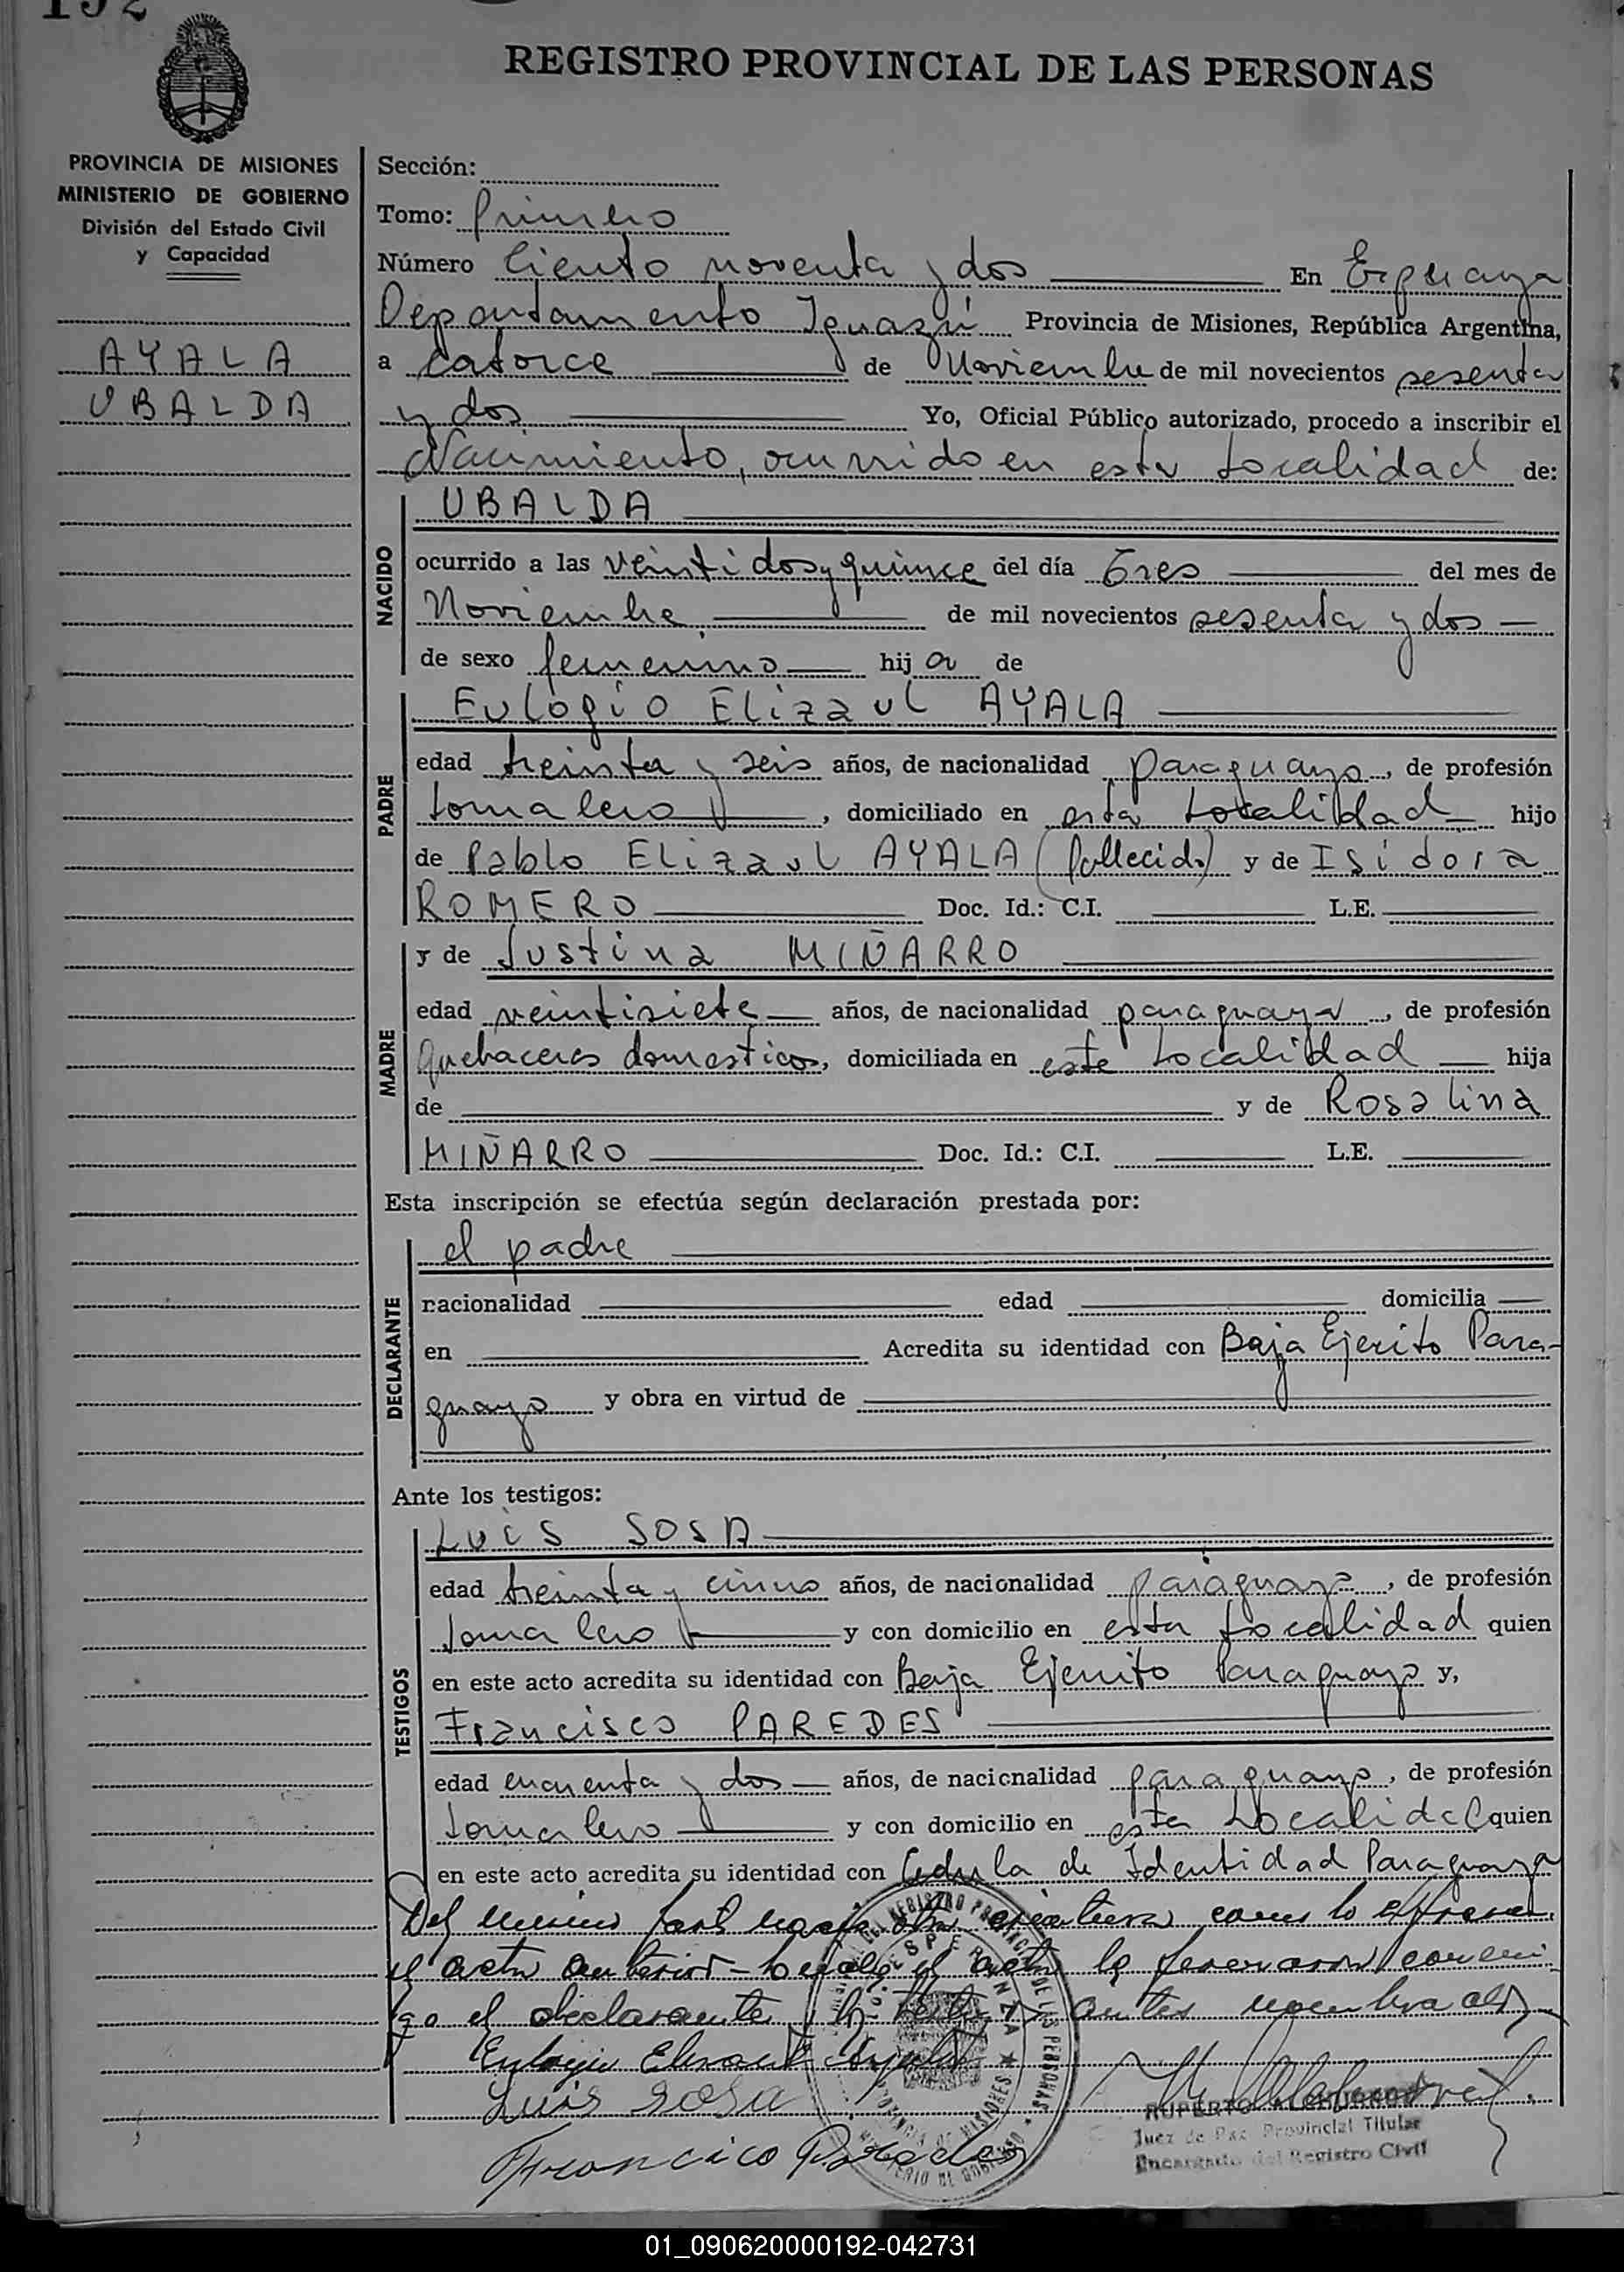 192
REGISTRO PROVINCIAL DE LAS PERSONAS
PROVINCIA DE MISIONES
MINISTERIO DE GOBIERNO
División del Estado Civil
y Capacidad
AYALA
UBALDA
Sección:
Tomo: Primero
Número Ciento noventa y dos En Esperanza
Departamento Iguazú Provincia de Misiones, República Argentina,
a catorce de Noviembre de mil novecientos sesenta
y dos Yo, Oficial Público autorizado, procedo a inscribir el
Nacimiento, ocurrido en esta localidad de:
NACIDO
UBALDA
ocurrido a las veintidos y quince del día Tres del mes de
Noviembre de mil novecientos sesenta y dos
de sexo femenino hija de
PADRE
Eulogio Elizaul AYALA
edad treinta y seis años, de nacionalidad paraguayo, de profesión
Jornalero, domiciliado en esta localidad hijo
de Pablo Elizaul AYALA (fallecido) y de Isidora
ROMERO Doc. Id.: C.I. L.E.
MADRE
y de Justina MIÑARRO
edad veintisiete años, de nacionalidad paraguaya, de profesión
Quehaceres domesticos, domiciliada en este localidad hija
de y de Rosalina
MIÑARRO Doc. Id.: C.I. L.E.
Esta inscripción se efectúa según declaración prestada por:
DECLARANTE
el padre
nacionalidad edad domicilia
en Acredita su identidad con Baja Ejercito Para-
guayo y obra en virtud de
Ante los testigos:
TESTIGOS
Luis SOSA
edad treinta y cinco años, de nacionalidad paraguayo, de profesión
Jornalero y con domicilio en esta localidad quien
en este acto acredita su identidad con Baja Ejercito Paraguayo y,
Francisco PAREDES
edad cincuenta y dos años, de nacionalidad paraguayo, de profesión
Jornalero y con domicilio en esta localidad quien
en este acto acredita su identidad con Cedula de Identidad Paraguaya
Del mismo otra criatura como lo expresa
el acta anterior - el acta la firmaron conmi
go el declarante y antes nombrados
Luis Sosa
Francico Paredes
ESPERANZA
PROVINCIA DE MISIONES
RUPERTO
Juez de Paz Provincial Titular
Encargado del Registro Civil
01_090620000192-042731